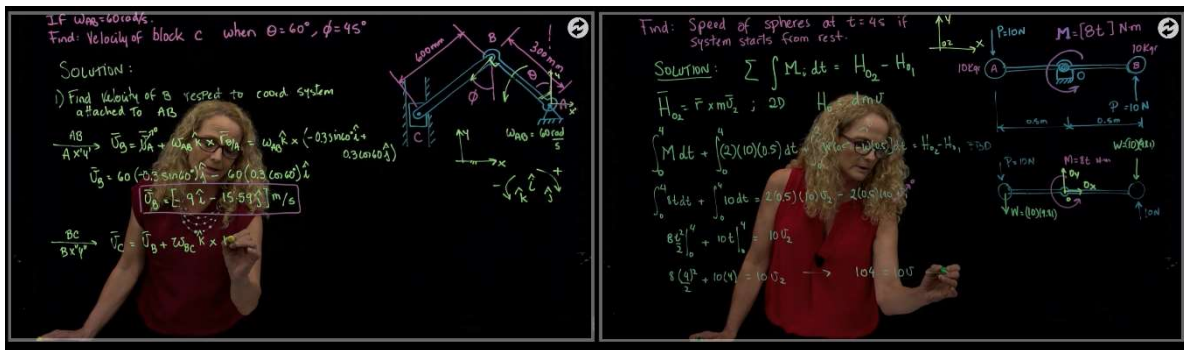 If ω_AB = 60 rad/s.
Find: Velocity of block C when θ=60°, ϕ=45°
SOLUTION:
1) Find velocity of B respect to coord system
attached to AB
AB
A x"y"
v̄_B = v̄_A + ω_AB k̂ x r̄_B/A = ω_AB k̂ x (-0.3 sin60° î +
0.3 cos60 ĵ)
v̄_B = 60 (-0.3 sin60°) ĵ - 60 (0.3 cos60°) î
v̄_B = [-9 î - 15.59 ĵ] m/s
BC
B x"y"
v̄_C = v̄_B + ω_BC k̂ x
600mm
B
300mm
θ
ϕ
C
A
Y
x
ω_AB = 60 rad/s
- +
î
k̂ ĵ
Find: Speed of spheres at t = 4s if
system starts from rest.
Y
x
02
SOLUTION: Σ ∫ M_i dt = H_O2 - H_O1
H̄_O2 = r̄ x m v̄_2 ; 2D H dmv
∫₀⁴ M dt + ∫₀⁴ (2)(10)(0.5) dt + W(0.5) dt = H_O2 - H_O1
∫₀⁴ 8t dt + ∫₀⁴ 10 dt = 2(0.5)(10) v_2 - 2(0.5)(10)
8t²/2 |₀⁴ + 10t |₀⁴ = 10 v_2
8(4)²/2 + 10(4) = 10 v_2 → 104 = 10 v
P=10N
M=[8t] N·m
10Kgr
10Kgr
A
B
O
P=10N
0.5m
0.5m
W=(10)(9.81)
P=10N
M=8t N·m
Oy
Ox
o
W=(10)(9.81)
10N